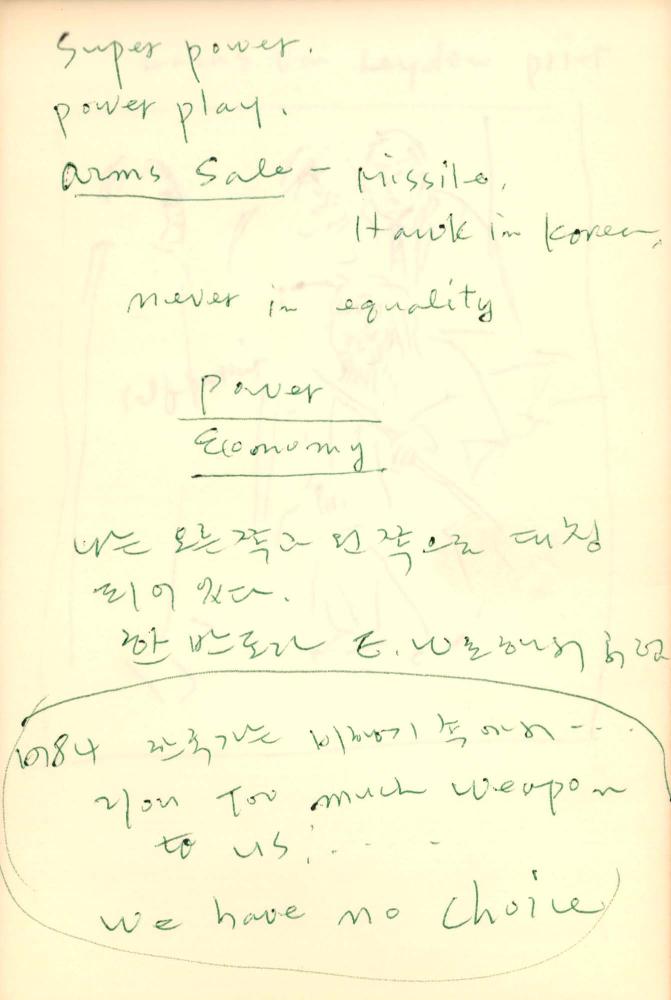 Super power.
power play.
arms Sale - Missile,
Hawk in Korea,
never in equality
Power
Economy
나는 오른쪽과 왼쪽으로 대칭
되어 있다.
한 반도라 E. W로
1984 한국가는 비행기 속에서 ---.
you Too much weapon
to us; . . . . -
we have no choice